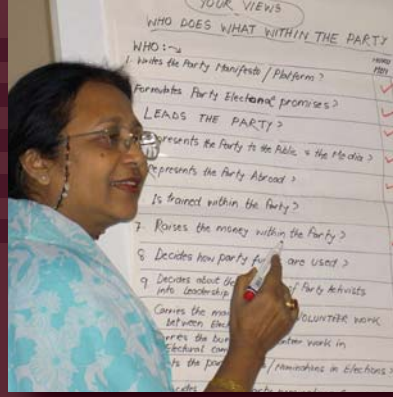 YOUR VIEWS
WHO DOES WHAT WITHIN THE PARTY
WHO :→
MEN
1. Writes the Party Manifesto / Platform?
Formulates Party Electoral promises?
LEADS THE PARTY?
presents the Party to the Public & the Media?
represents the Party Abroad?
Is trained within the Party?
7. Raises the money within the Party?
8 Decides how party fu are used?
9 Decides about the of Party Activists
into Leadership
Carries the VOLUNTEER WORK
between Elec
rries the bur nteer work in
Electoral cam
ts the / nominations in Elections?